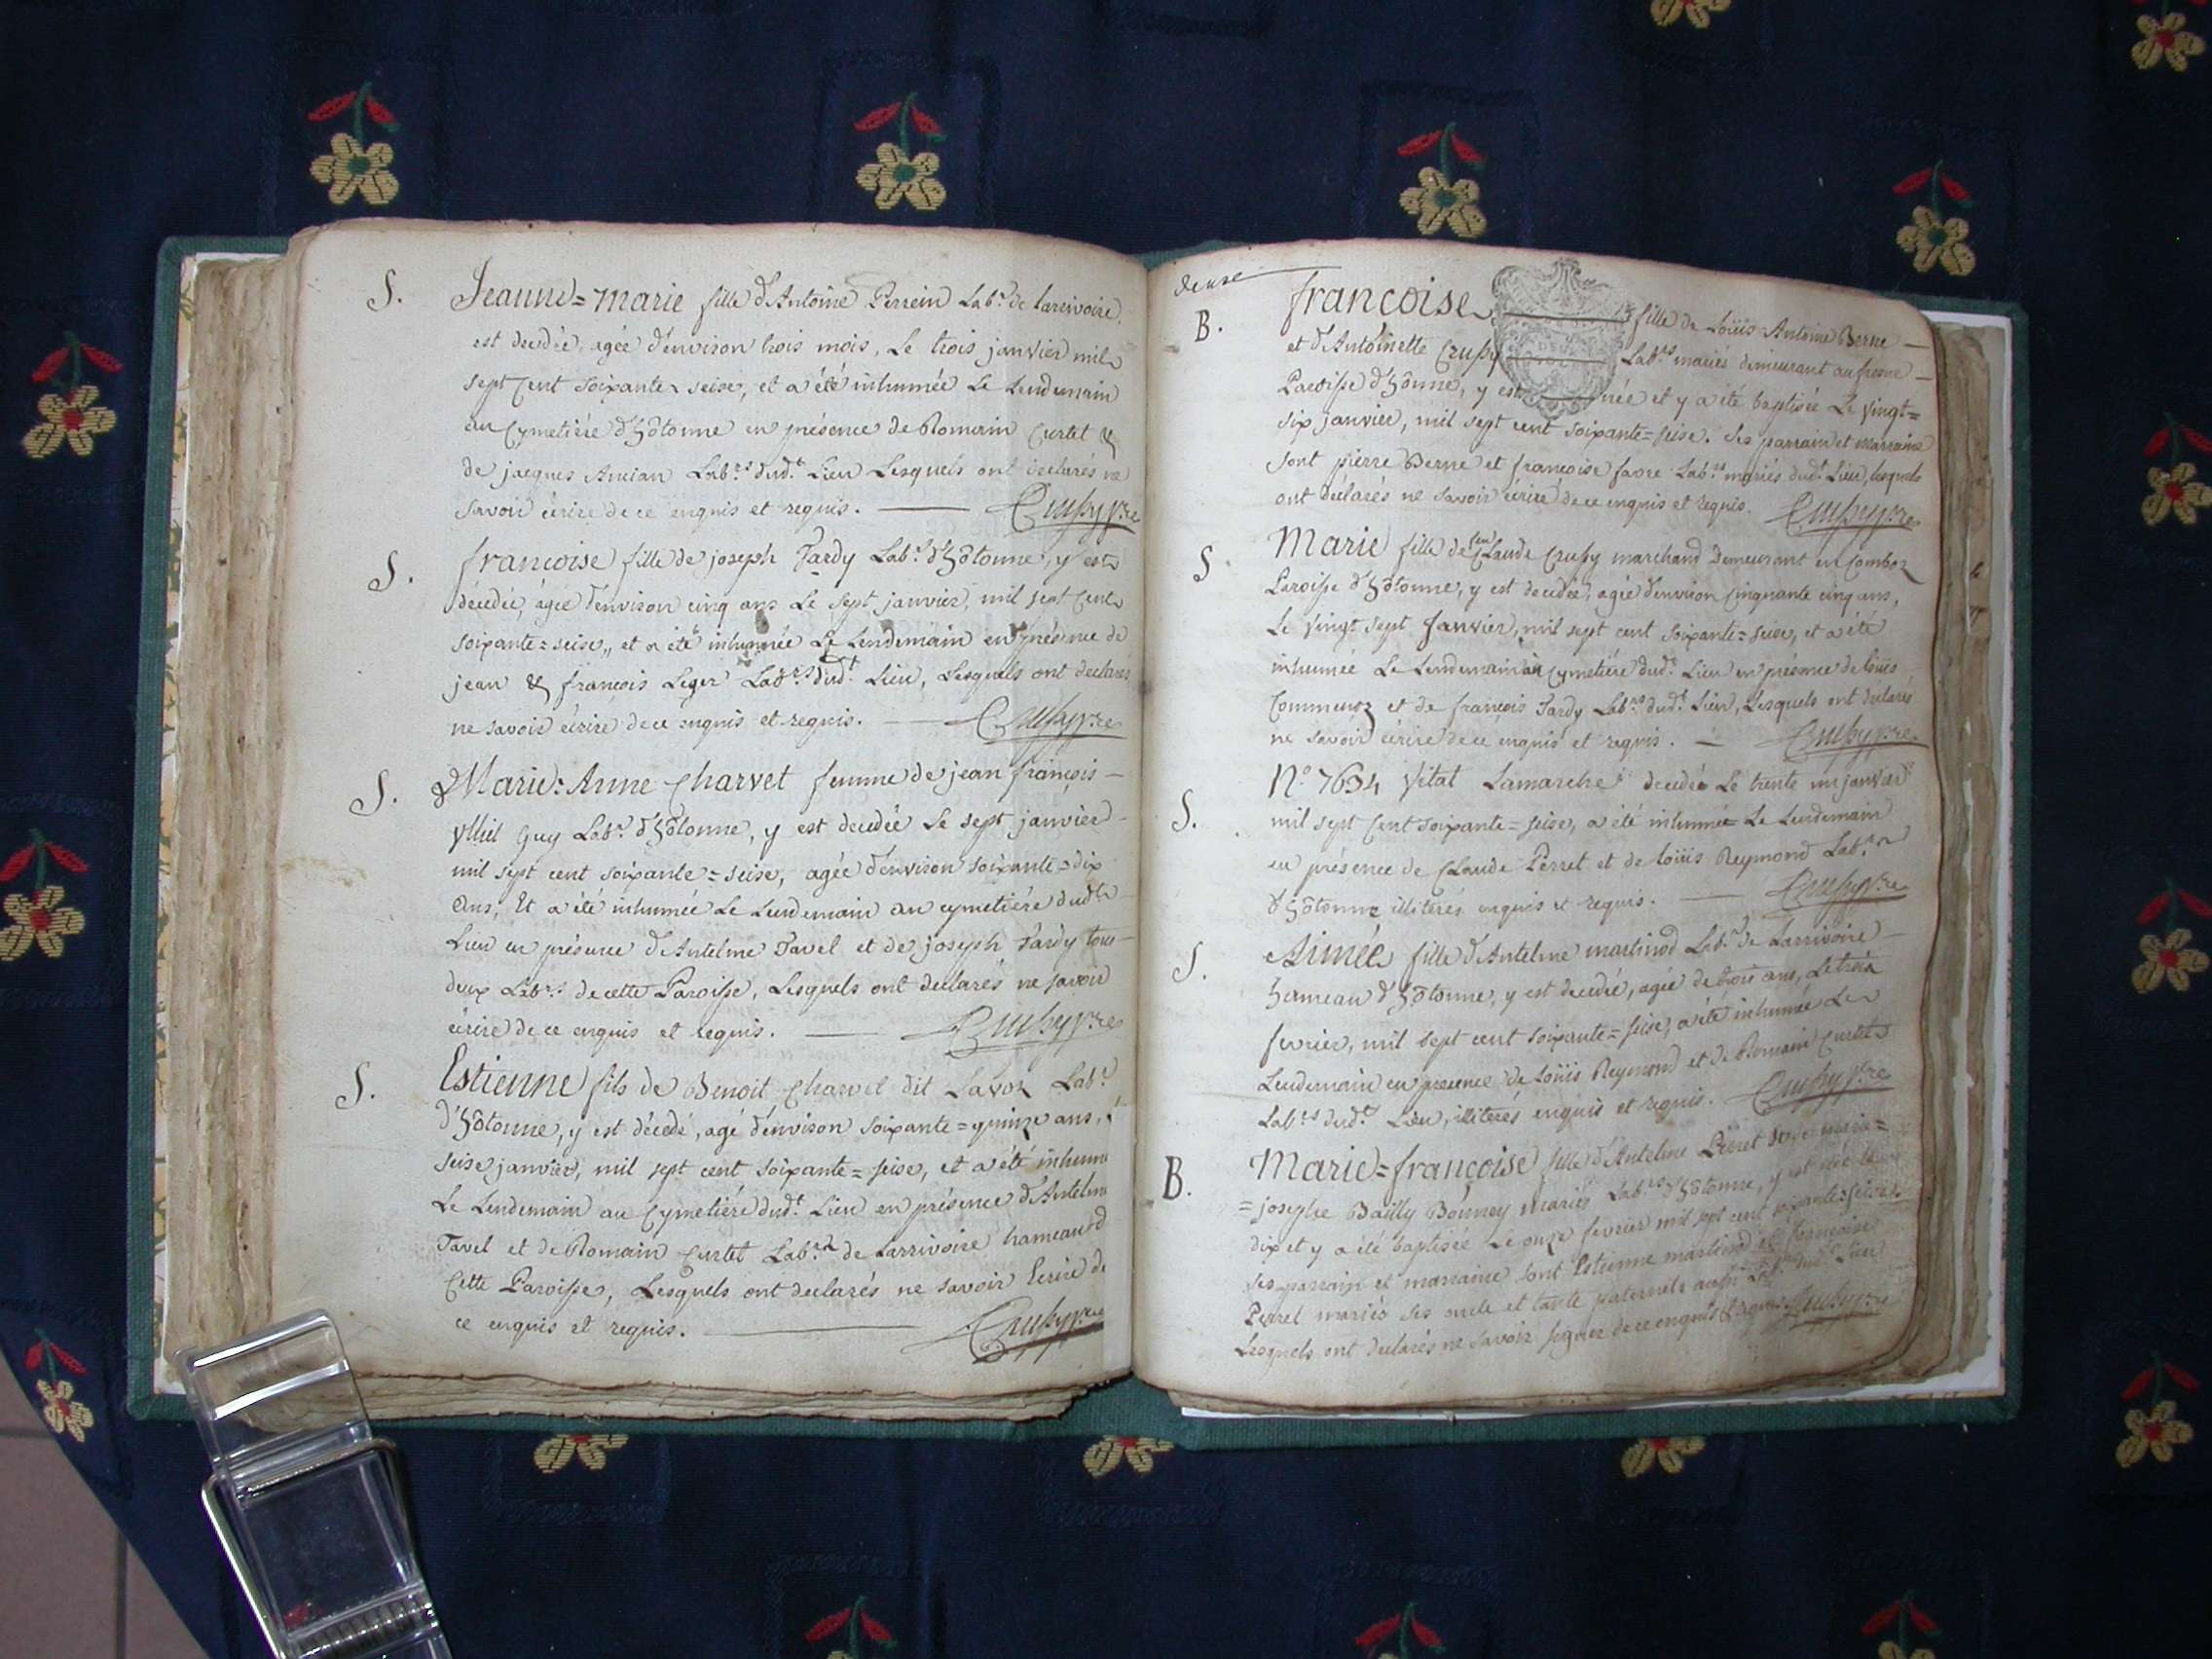 S. Jeanne=marie fille d'Antoine Perrein Lab.r de lareivoire
est decedée, agée d'environ trois mois, Le trois janvier mil
sept Cent soixante seise, et a été inhumée Le Lendemain
au Cymetière d'hôtonne en présence de Romain Curtet &
de jacques Ancian Lab.rs dud.t Lieu Lesquels ont déclarés ne
savoir écrire de ce enquis et requis.
S. françoise fille de joseph Tardy Lab.r d'hôtonne, y est
décedée, agée d'environ cinq ans Le sept janvier, mil sept Cent
soixante=seise,, et a été inhumée Le Lendemain en présence de
jean & françois Leger Lab.rs dud.t Lieu, Lesquels ont déclarés
ne savoir écrire de ce enquis et requis.
S. Marie=Anne Charvet femme de jean françois
Guy Lab.r d'hôtonne, y est decedée Le sept janvier
mil sept cent soixante=seise, agée d'environ soixante=dix
Ans, Et a été inhumée Le Lendemain au cymetière dud.t
Lieu en présence d'Antelme Tavel et de joseph Tardy tous
deux Lab.rs de cette Paroisse, Lesquels ont déclarés ne savoir
écrire de ce enquis et requis.
S. Estienne fils de Benoit Charvet dit Lavoz Lab.r
d'hôtonne, y est décedé, agé d'environ soixante=quinze ans,
seise janvier, mil sept cent soixante=seise, et a été inhumé
Le Lendemain au Cymetière dud.t Lieu en présence d'Antelme
Tavel et de Romain Curtet Lab.rs de Larrivoire hameau d
Cette Paroisse, Lesquels ont declarés ne savoir Ecrire de
ce enquis et requis.
deuxe
B. françoise fille de Loüis Antoine Berne
et d'Antoinette Crussy Lab.rs mariés demeurant au frene
Paroisse d'hônne, y est née et y a été baptisée Le Vingt=
six janvier, mil sept cent soixante=seise. Ses parrain et marraine
sont pierre Berne et françoise favre Lab.rs mariés dud.t Lieu, lesquels
ont déclarés ne savoir écrire de ce enquis et requis.
S Marie fille de feu Claude Crussy marchand Demeurant en Comboz
Paroisse d'hôtonne, y est decedée, agée d'environ Cinquante cinq ans,
Le Vingt sept Janvier, mil sept cent soixante=seise, et a été
inhumée Le Lendemain au Cymetière dud.t Lieu en présence de Loüis
et de françois Tardy Lab.rs dud.t Lieu, Lesquels ont déclarés
ne savoir écrire de ce enquis et requis.
S. N.o 7634 Vital Lamarche decedé Le trente un janvier
mil sept Cent soixante=seise, a été inhumé Le Lendemain
en présence de Claude Perret et de Loüis Reymond Lab.rs
d'hôtonne illiterés enquis et requis.
S. Aimée fille d'Antelme martinod Lab.r de Larrivoire
hameau d'hôtonne, y est decedée, agée de trois ans, Le trois
fevrier, mil sept cent soixante=seise, a été inhumée Le
Lendemain en presence de Loüis Reymond et de Romain Curtet
Lab.rs dud.t Lieu, illiterés enquis et requis.
B. Marie=françoise fille d'Antelme Perret et de marie=
=josephe Bailly Bonney mariés Lab.rs d'hôtonne, y est née le
dix et y a été baptisée Le onze fevrier mil sept cent soixante=seise
ses parrain et marraine sont Estienne martinod et françoise
Perret mariés ses oncle et tante paternels aussi Lab.rs dud.t Lieu
Lesquels ont declarés ne savoir signer de ce enquis & requis